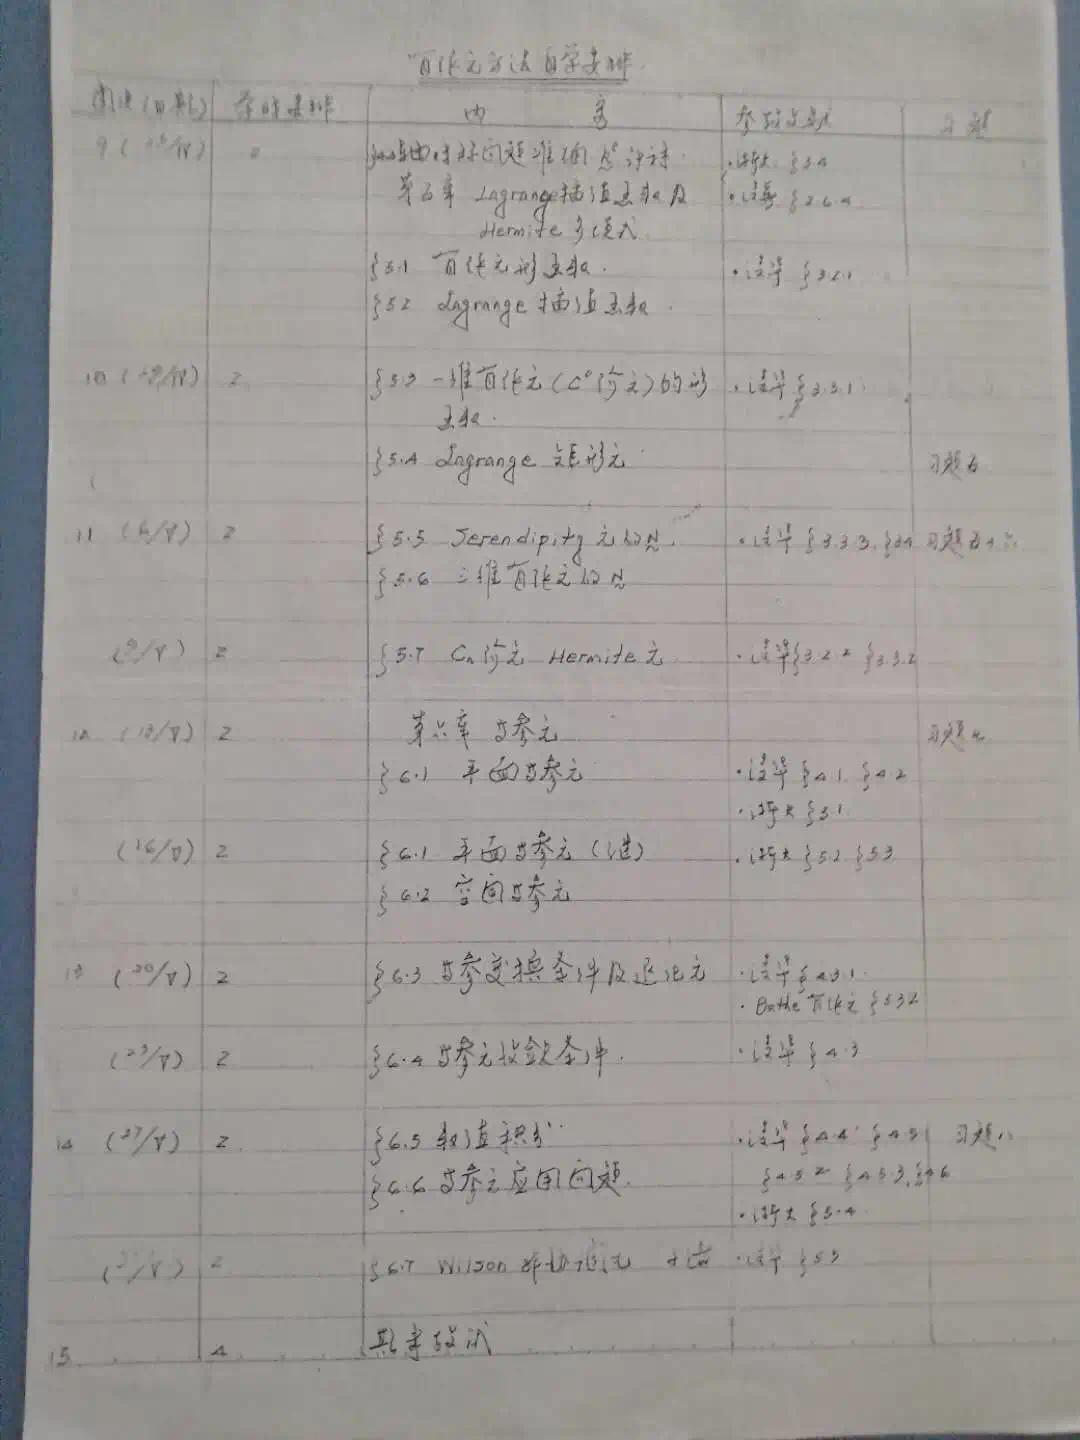 有限元方法自学安排
周次(日期) 学时安排 内 容 参考文献 习题
9 轴对称问题
第五章 Lagrange插值函数及 {3.4
Hermite多项式 {2.6.4
{5.1 有限元形函数. {3.2.1
{5.2 Lagrange 插值函数.
10 2 {5.3 一维有限元(C°阶元)的形 {3.3.1
函数.
{5.4 Lagrange 矩形元 习题五
11 (6/V) 2 {5.5 Serendipity 元的N. {3.3.3, {3.4 习题五
{5.6 三维有限元的N
(9/V) 2 {5.7 Cn阶元 Hermite元 {3.2.2 {3.3.2
12 (13/V) 2 第六章 等参元 习题七
{6.1 平面等参元 {4.1, {4.2
·浙大 {5.1
(16/V) 2 {6.1 平面等参元(续) ·浙大 {5.2 {5.3
{6.2 空间等参元
13 (20/V) 2 {6.3 等参变换条件及退化元 {4.3.1
· Bathe 有限元 {5.3.2
(23/V) 2 {6.4 等参元收敛条件. {4.3
14 (27/V) 2 {6.5 数值积分 {4.4 {4.5 习题八
{6.6 等参元应用问题. {4.5.2 {4.5.3, {4.6
·浙大 {5.4
2 {6.7 Wilson 非协调元 {5.3
15 4 期末考试